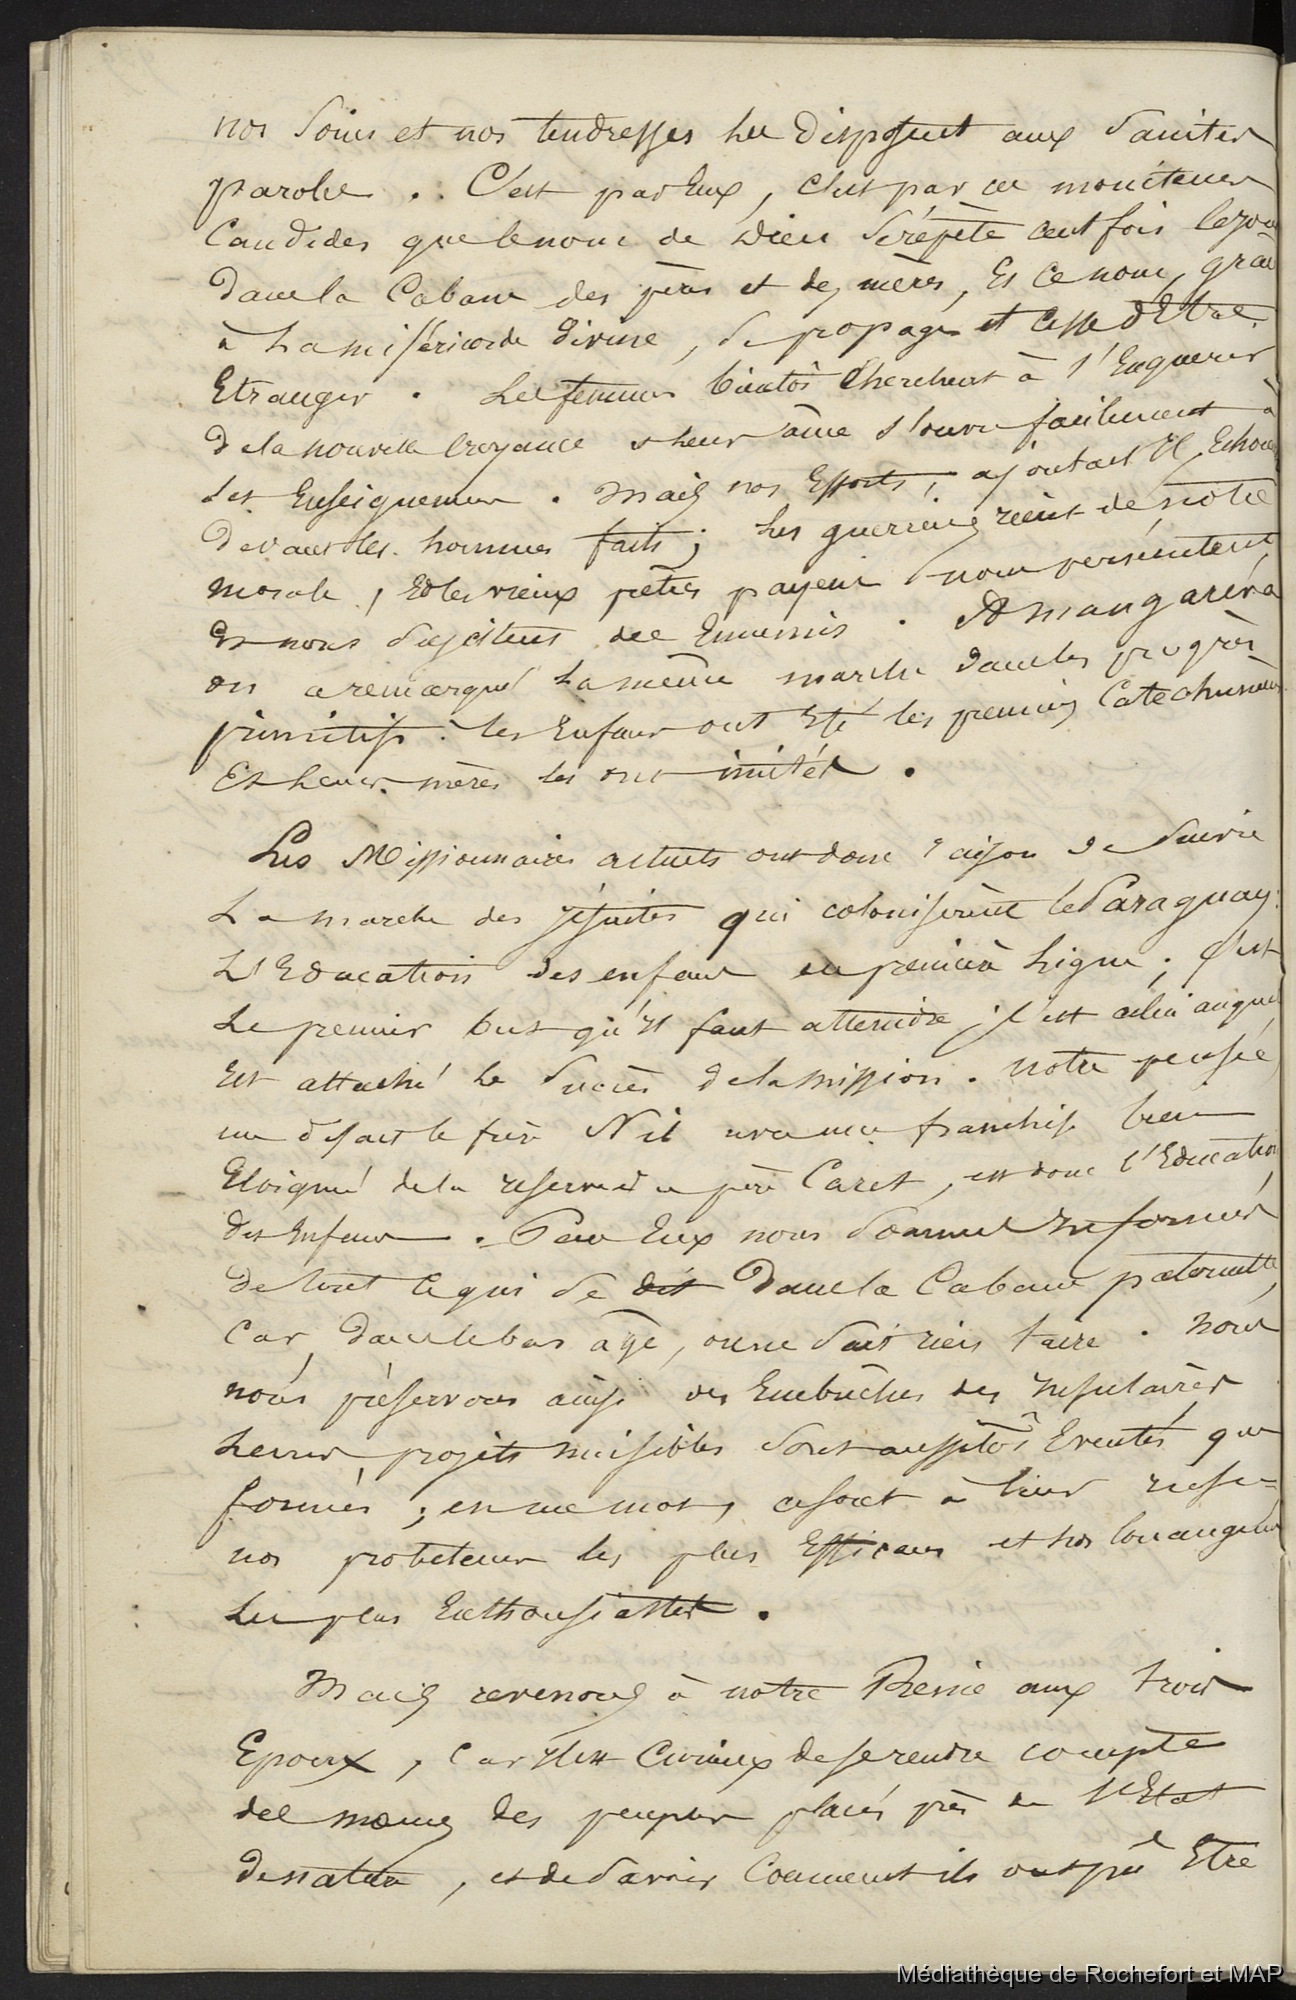 nos soins et nos tendresses les disposent aux saintes
paroles. C'est par eux, c'est par ces moniteurs
candides que le nom de Dieu se répète cent fois le jour
dans la cabane des pères et des mères, et ce nom, grace
à la miséricorde divine, se propage et cesse d'être
étranger. Les femmes bientôt cherchent à s'enquérir
de la nouvelle croyance et leur âme s'ouvre facilement à
ses enseignemens. Mais nos efforts, ajoutait il, échouent
devant les hommes faits; les guerriers rient de notre
morale, et les vieux prêtres payens nous persécutent
et nous suscitent des ennemis. A Mangaréva
on a remarqué la même marche dans les progrès
primitifs: les enfans ont été les premiers catechumènes
et leurs mères les ont imités.
Les Missionnaires actuels ont donc raison de suivre
la marche des jésuites qui colonisèrent le Paraguay:
l'Education des enfans en première ligne; c'est
le premier but qu'il faut atteindre; c'est celui auquel
est attaché le succès de la mission. Notre pensée
me disait le frère Nil avec une franchise bien
éloignée de la reserve du père Caret, est donc l'Education
des enfans. Par eux nous sommes informés
de tout ce qui se dit dans la cabane paternelle,
car, dans le bas âge, on ne sait rien taire. Nous
nous préservons ainsi des embûches des insulaires
leurs projets nuisibles sont aussitôt éventés que
formés; en un mot, ce sont à leur insu
nos protecteurs les plus efficaces et nos louangeurs
les plus enthousiastes.
Mais revenons à notre Reine aux trois
époux, car il est curieux de se rendre compte
des moeurs des peuples placés près de l'Etat
de nature, et de savoir comment ils ont pu être
Médiathèque de Rochefort et MAP